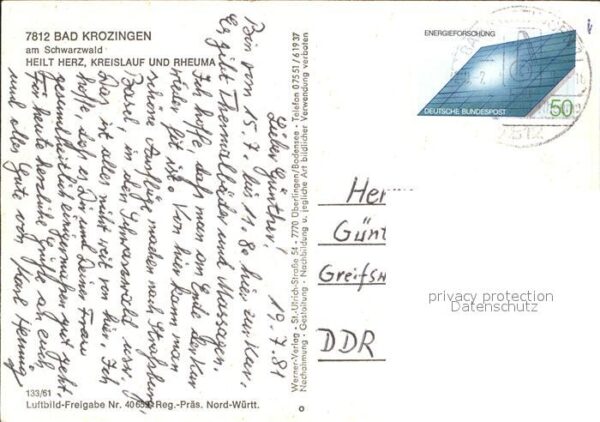 7812 BAD KROZINGEN
am Schwarzwald
HEILT HERZ, KREISLAUF UND RHEUMA
Lieber Günther! 19.7.81
Bin vom 15.7. bis 11.8. hier zur Kur.
Es gibt Thermalbäder und Massagen.
Ich hoffe, daß man am Ende der Kur
wieder fit ist. Von hier kann man
schöne Ausflüge machen nach Straßburg,
Basel, in den Schwarzwald usw.
Das ist alles nicht weit von hier. Ich
hoffe, daß es Dir und Deiner Frau
gesundheitlich einigermaßen gut geht.
Für heute herzliche Grüße an euch
und alles Gute von Karl Hennig
133/61
Luftbild-Freigabe Nr. 40 Reg.-Präs. Nord-Württ.
Werner-Verlag · St.-Ulrich-Straße 54 · 7770 Überlingen/Bodensee · Telefon 07551/61937
Nachahmung · Gestaltung · Nachbildung u. jegliche Art bildlicher Verwendung verboten
ENERGIEFORSCHUNG
DEUTSCHE BUNDESPOST
50
7812
Her
Günt
Greifsw
DDR
privacy protection
Datenschutz